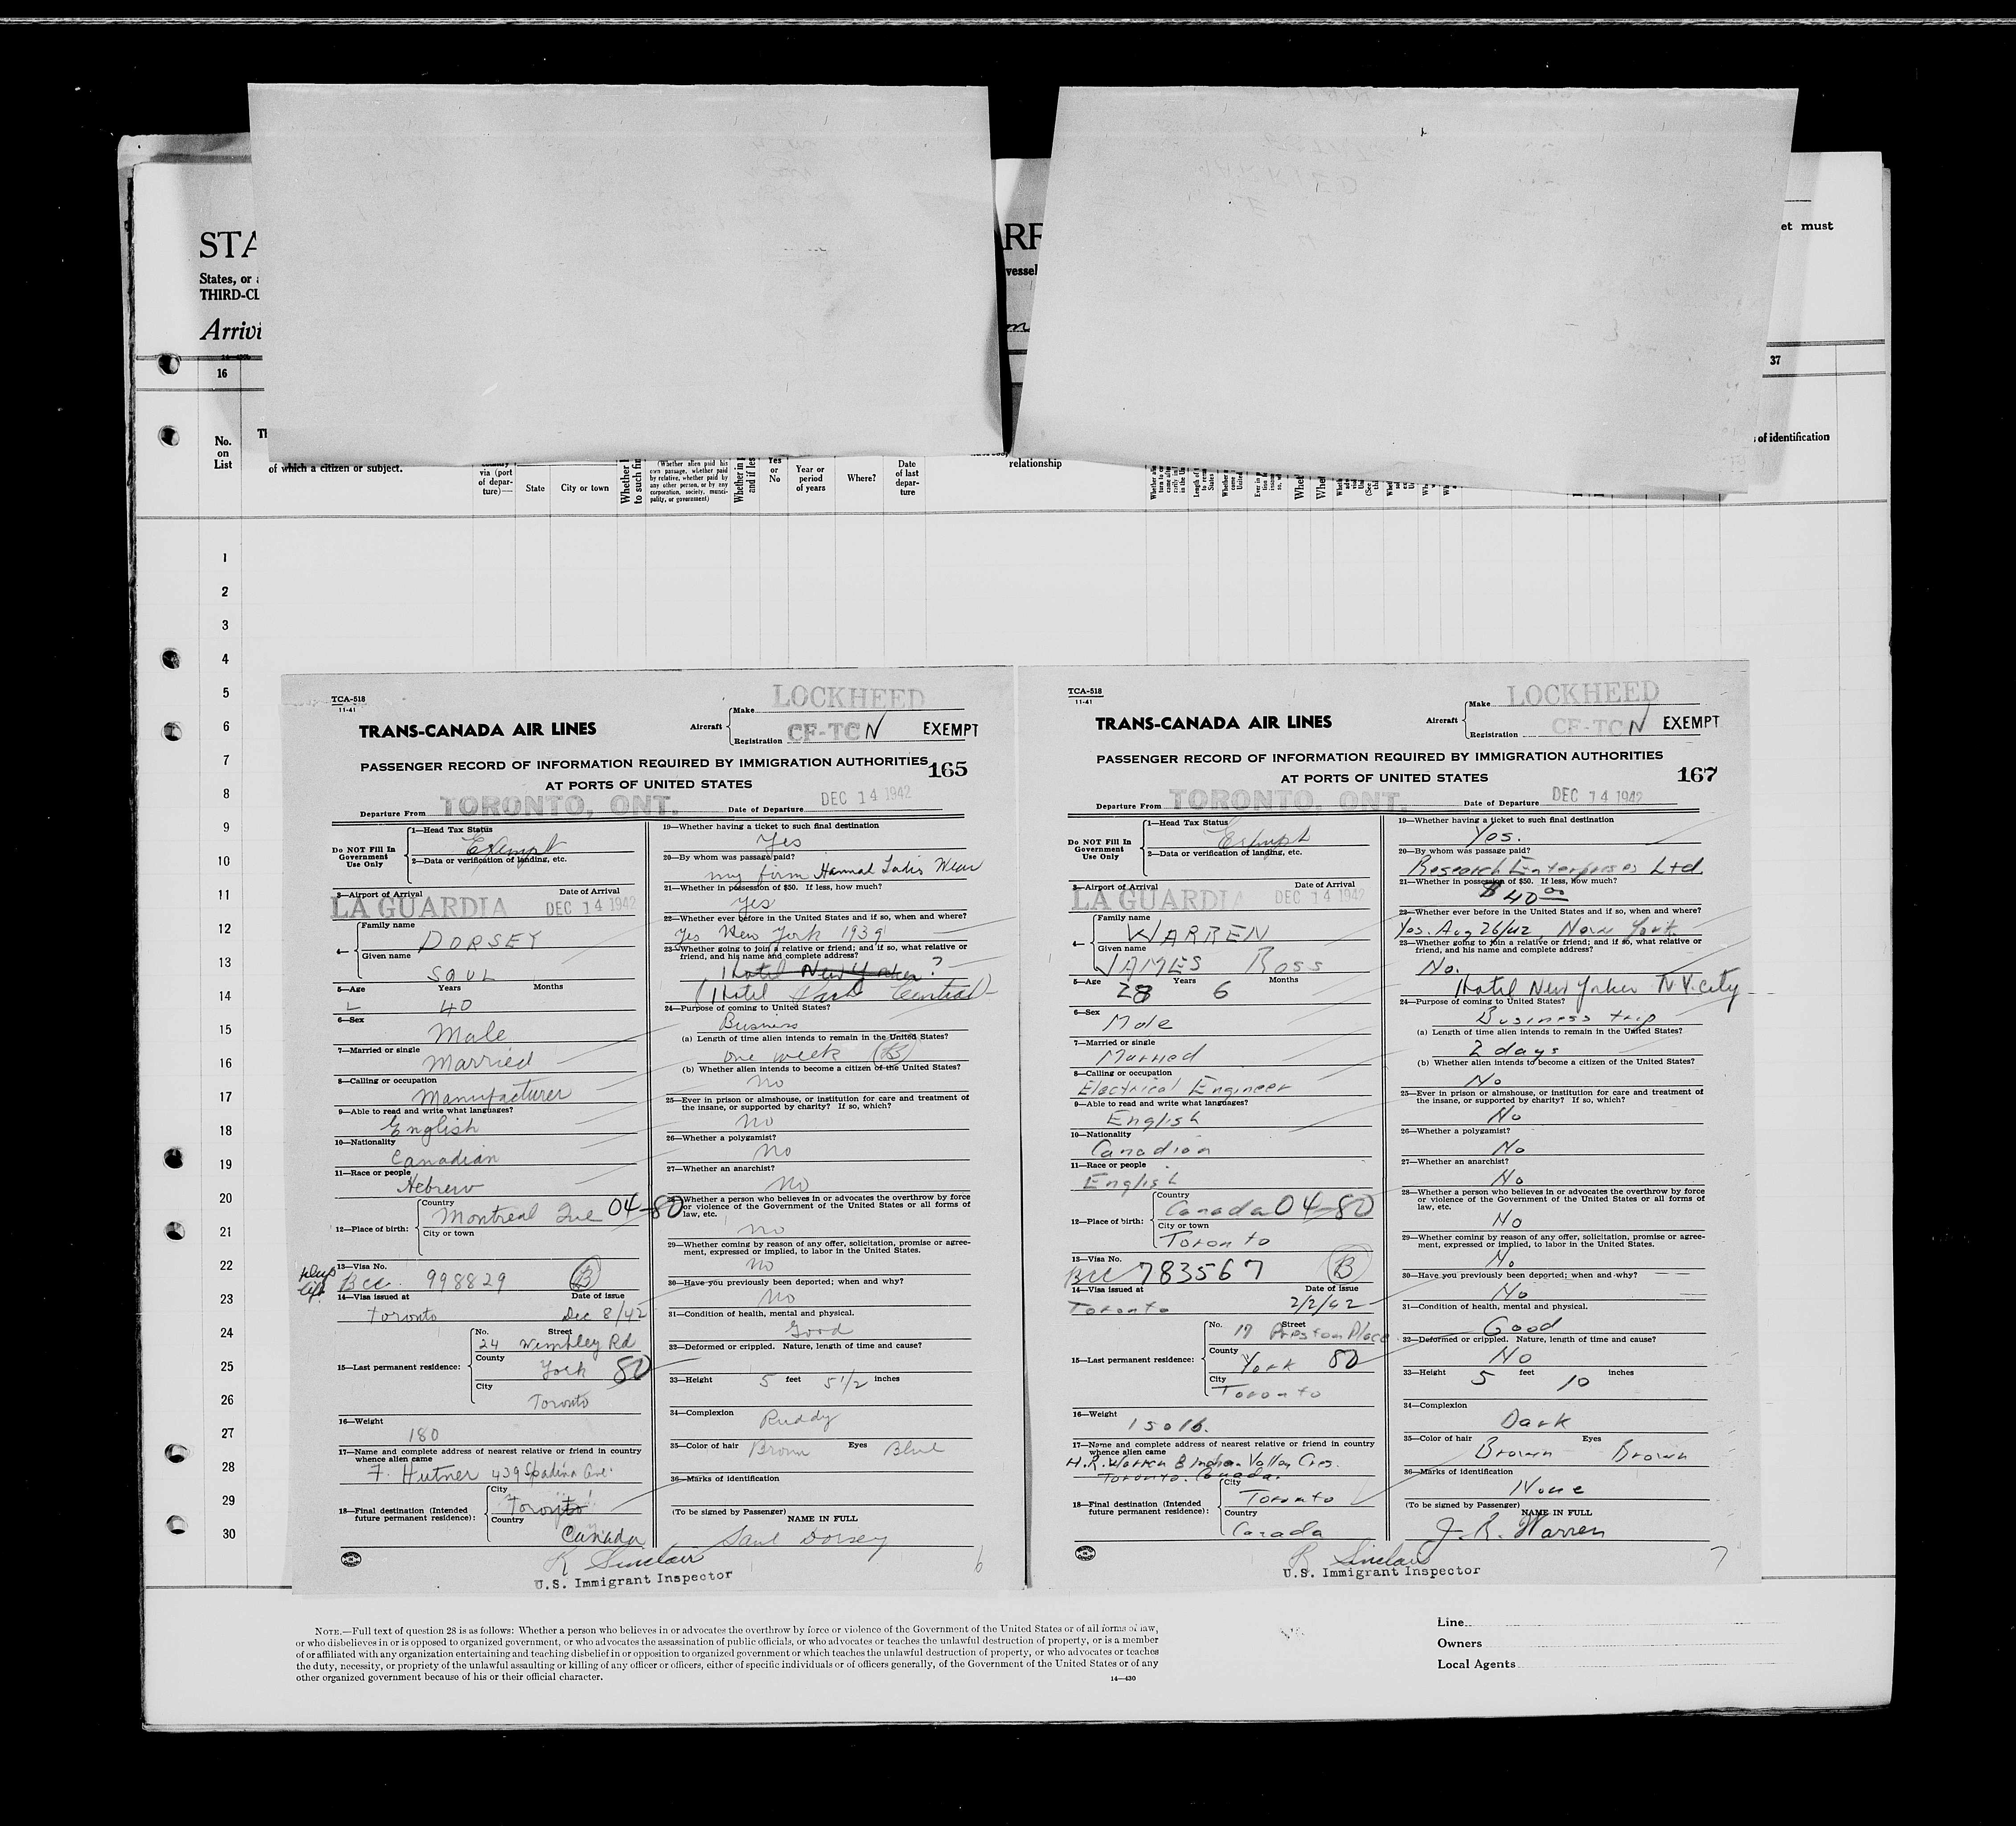 STA
RR
et must
States, or a
vessel
THIRD-CL
Arrivi
16
37
No.
on
List
of which a citizen or subject.
via (port
of depar-
ture)—
State
City or town
(Whether alien paid his
own passage, whether paid
by relative, whether paid by
any other person, or by any
corporation, society, munici-
pality, or government)
Yes
or
No
Year or
period
of years
Where?
Date
of last
depar-
ture
relationship
of identification
1
2
3
4
5
6
7
8
9
10
11
12
13
14
15
16
17
18
19
20
21
22
23
24
25
26
27
28
29
30
TCA-518
11-41
TRANS-CANADA AIR LINES
Aircraft
Make LOCKHEED
Registration CF-TCN
EXEMPT
PASSENGER RECORD OF INFORMATION REQUIRED BY IMMIGRATION AUTHORITIES
AT PORTS OF UNITED STATES
165
Departure From TORONTO, ONT. Date of Departure DEC 14 1942
Do NOT Fill In
Government
Use Only
1—Head Tax Status
Exempt
2—Data or verification of landing, etc.
3—Airport of Arrival Date of Arrival
LA GUARDIA DEC 14 1942
4—
Family name
DORSEY
Given name
SAUL
5—Age Years Months
40
6—Sex
Male
7—Married or single
Married
8—Calling or occupation
Manufacturer
9—Able to read and write what languages?
English
10—Nationality
Canadian
11—Race or people
Hebrew
12—Place of birth:
Country
Montreal Que 04-80
City or town
13—Visa No.
Bcc. 998829 B
14—Visa issued at Date of issue
Toronto Dec 8/42
15—Last permanent residence:
No. Street
24 Wembley Rd
County
York 80
City
Toronto
16—Weight
180
17—Name and complete address of nearest relative or friend in country
whence alien came
F. Hutner 439 Spadina Ave.
18—Final destination (Intended
future permanent residence):
City
Toronto
Country
Canada
19—Whether having a ticket to such final destination
Yes
20—By whom was passage paid?
my firm Hammal Ladies Wear
21—Whether in possession of $50. If less, how much?
Yes
22—Whether ever before in the United States and if so, when and where?
Yes New York 1939
23—Whether going to join a relative or friend; and if so, what relative or
friend, and his name and complete address?
Hotel New Yorker ?
(Hotel Park Central)
24—Purpose of coming to United States?
Business
(a) Length of time alien intends to remain in the United States?
one week (B)
(b) Whether alien intends to become a citizen of the United States?
no
25—Ever in prison or almshouse, or institution for care and treatment of
the insane, or supported by charity? If so, which?
no
26—Whether a polygamist?
no
27—Whether an anarchist?
no
28—Whether a person who believes in or advocates the overthrow by force
or violence of the Government of the United States or all forms of
law, etc.
no
29—Whether coming by reason of any offer, solicitation, promise or agree-
ment, expressed or implied, to labor in the United States.
no
30—Have you previously been deported; when and why?
no
31—Condition of health, mental and physical.
Good
32—Deformed or crippled. Nature, length of time and cause?
33—Height 5 feet 5 1/2 inches
34—Complexion
Ruddy
35—Color of hair Brown Eyes Blue
36—Marks of identification
(To be signed by Passenger)
NAME IN FULL
Saul Dorsey
R Sinclair
U.S. Immigrant Inspector
6
TCA-518
11-41
TRANS-CANADA AIR LINES
Aircraft
Make LOCKHEED
Registration CF-TCN
EXEMPT
PASSENGER RECORD OF INFORMATION REQUIRED BY IMMIGRATION AUTHORITIES
AT PORTS OF UNITED STATES
167
Departure From TORONTO, ONT. Date of Departure DEC 14 1942
Do NOT Fill In
Government
Use Only
1—Head Tax Status
Exempt
2—Data or verification of landing, etc.
3—Airport of Arrival Date of Arrival
LA GUARDIA DEC 14 1942
4—
Family name
WARREN
Given name
JAMES Ross
5—Age Years Months
28 6
6—Sex
Male
7—Married or single
Married
8—Calling or occupation
Electrical Engineer
9—Able to read and write what languages?
English
10—Nationality
Canadian
11—Race or people
English
12—Place of birth:
Country
Canada 04-80
City or town
Toronto
13—Visa No.
Bcc 783567 B
14—Visa issued at Date of issue
Toronto 2/2/42
15—Last permanent residence:
No. Street
17 Preston Place
County
York 80
City
Toronto
16—Weight
150 lb.
17—Name and complete address of nearest relative or friend in country
whence alien came
H.R. Warren 8 Indian Valley Cres.
Toronto. Canada.
18—Final destination (Intended
future permanent residence):
City
Toronto
Country
Canada
19—Whether having a ticket to such final destination
Yes.
20—By whom was passage paid?
Research Enterprises Ltd.
21—Whether in possession of $50. If less, how much?
$40 00
22—Whether ever before in the United States and if so, when and where?
Yes. Aug 26/42, New York
23—Whether going to join a relative or friend; and if so, what relative or
friend, and his name and complete address?
No.
Hotel New Yorker N.Y. city
24—Purpose of coming to United States?
Business trip
(a) Length of time alien intends to remain in the United States?
2 days
(b) Whether alien intends to become a citizen of the United States?
No
25—Ever in prison or almshouse, or institution for care and treatment of
the insane, or supported by charity? If so, which?
No
26—Whether a polygamist?
No
27—Whether an anarchist?
No
28—Whether a person who believes in or advocates the overthrow by force
or violence of the Government of the United States or all forms of
law, etc.
No
29—Whether coming by reason of any offer, solicitation, promise or agree-
ment, expressed or implied, to labor in the United States.
No
30—Have you previously been deported; when and why?
No
31—Condition of health, mental and physical.
Good
32—Deformed or crippled. Nature, length of time and cause?
No
33—Height 5 feet 10 inches
34—Complexion
Dark
35—Color of hair Eyes
Brown Brown
36—Marks of identification
None
(To be signed by Passenger)
NAME IN FULL
J. R. Warren
R Sinclair
U.S. Immigrant Inspector
7
NOTE.—Full text of question 28 is as follows: Whether a person who believes in or advocates the overthrow by force or violence of the Government of the United States or of all forms of law,
or who disbelieves in or is opposed to organized government, or who advocates the assassination of public officials, or who advocates or teaches the unlawful destruction of property, or is a member
of or affiliated with any organization entertaining and teaching disbelief in or opposition to organized government or which teaches the unlawful destruction of property, or who advocates or teaches
the duty, necessity, or propriety of the unlawful assaulting or killing of any officer or officers, either of specific individuals or of officers generally, of the Government of the United States or of any
other organized government because of his or their official character.
14—430
Line
Owners
Local Agents